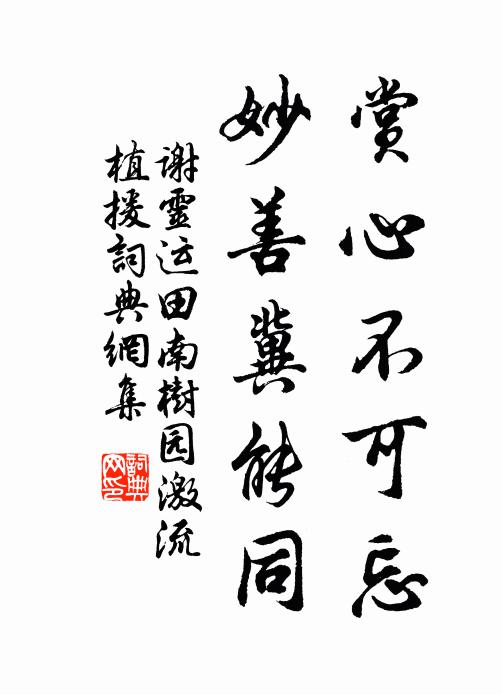 赏心不可忘
妙善冀能同
谢灵运田南樹园激流
植援詞典網集
詞典网印